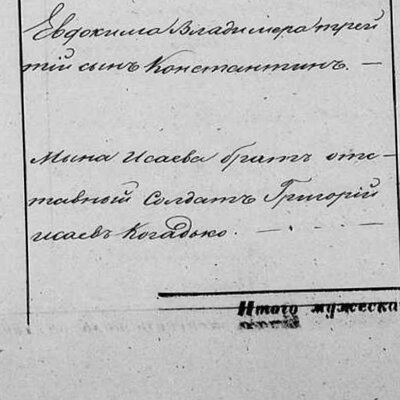 Евдокима Владимера трей
тій сынъ Константинъ. —
Мына Исаева братъ отс-
тавный Солдатъ Григорій
исаевъ Когадько. —
Итого мужеска